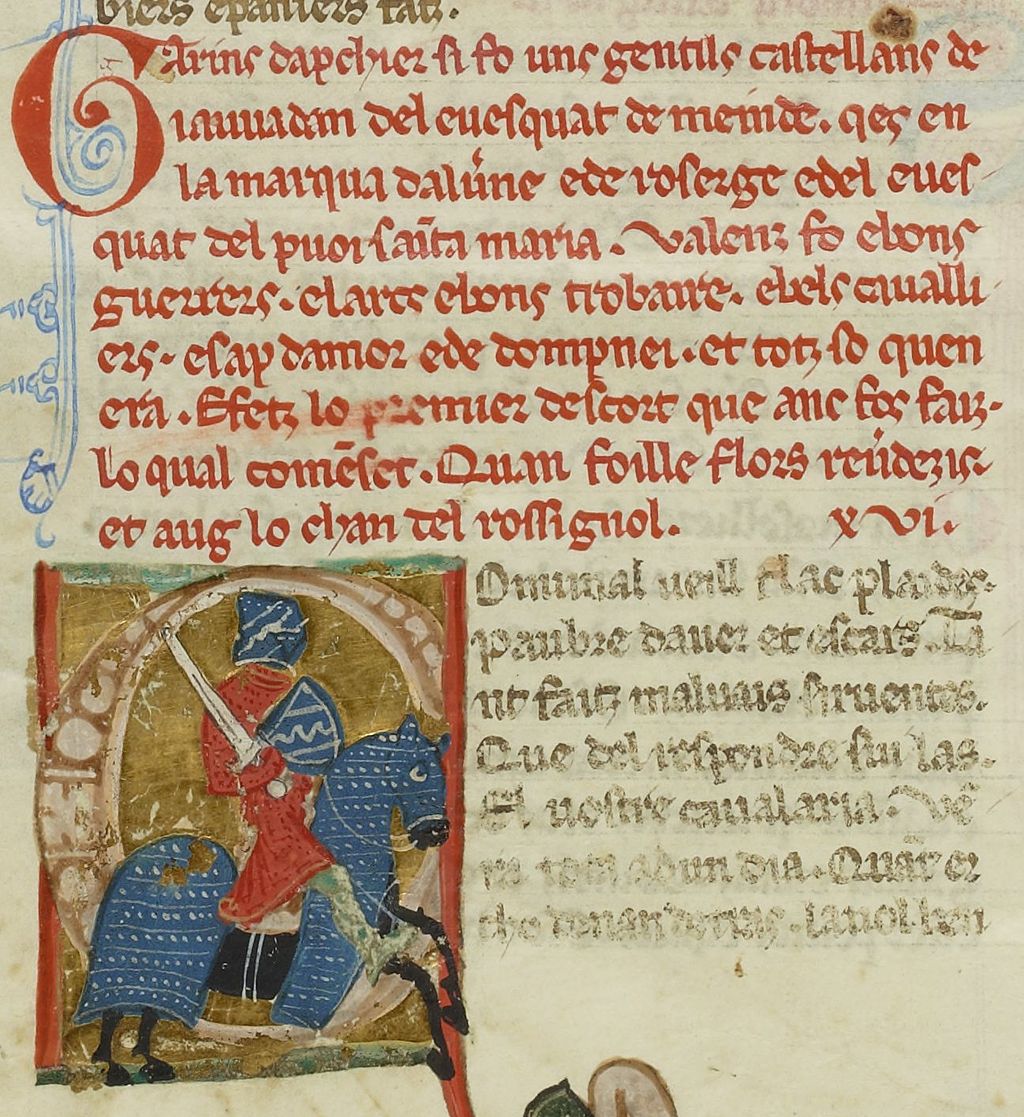 biers epaniers fatz.
Garins dapchier si fo uns gentils castellans de
iauuadan del euesquat de meinde. qes en
la marqua daluerne ede roserge edel eues
quat del puoi sancta maria. Valenz fo ebons
guerrers. elarcs ebons trobaire. ebels caualli
ers. esap damor ede dompnei. et totz so quen
era. Efetz lo premier descort que anc fos faitz.
lo qual comēset. Quan foille flors reuerdezis
et aug lo chan del rossignol. xvi.
Ominal ueill flac plaides.
paubre dauer et escars. Ta
nt faitz maluais siruentes.
Que del respondre sui las.
El uostre caualaria. Vē
ra tota adun dia. Quar